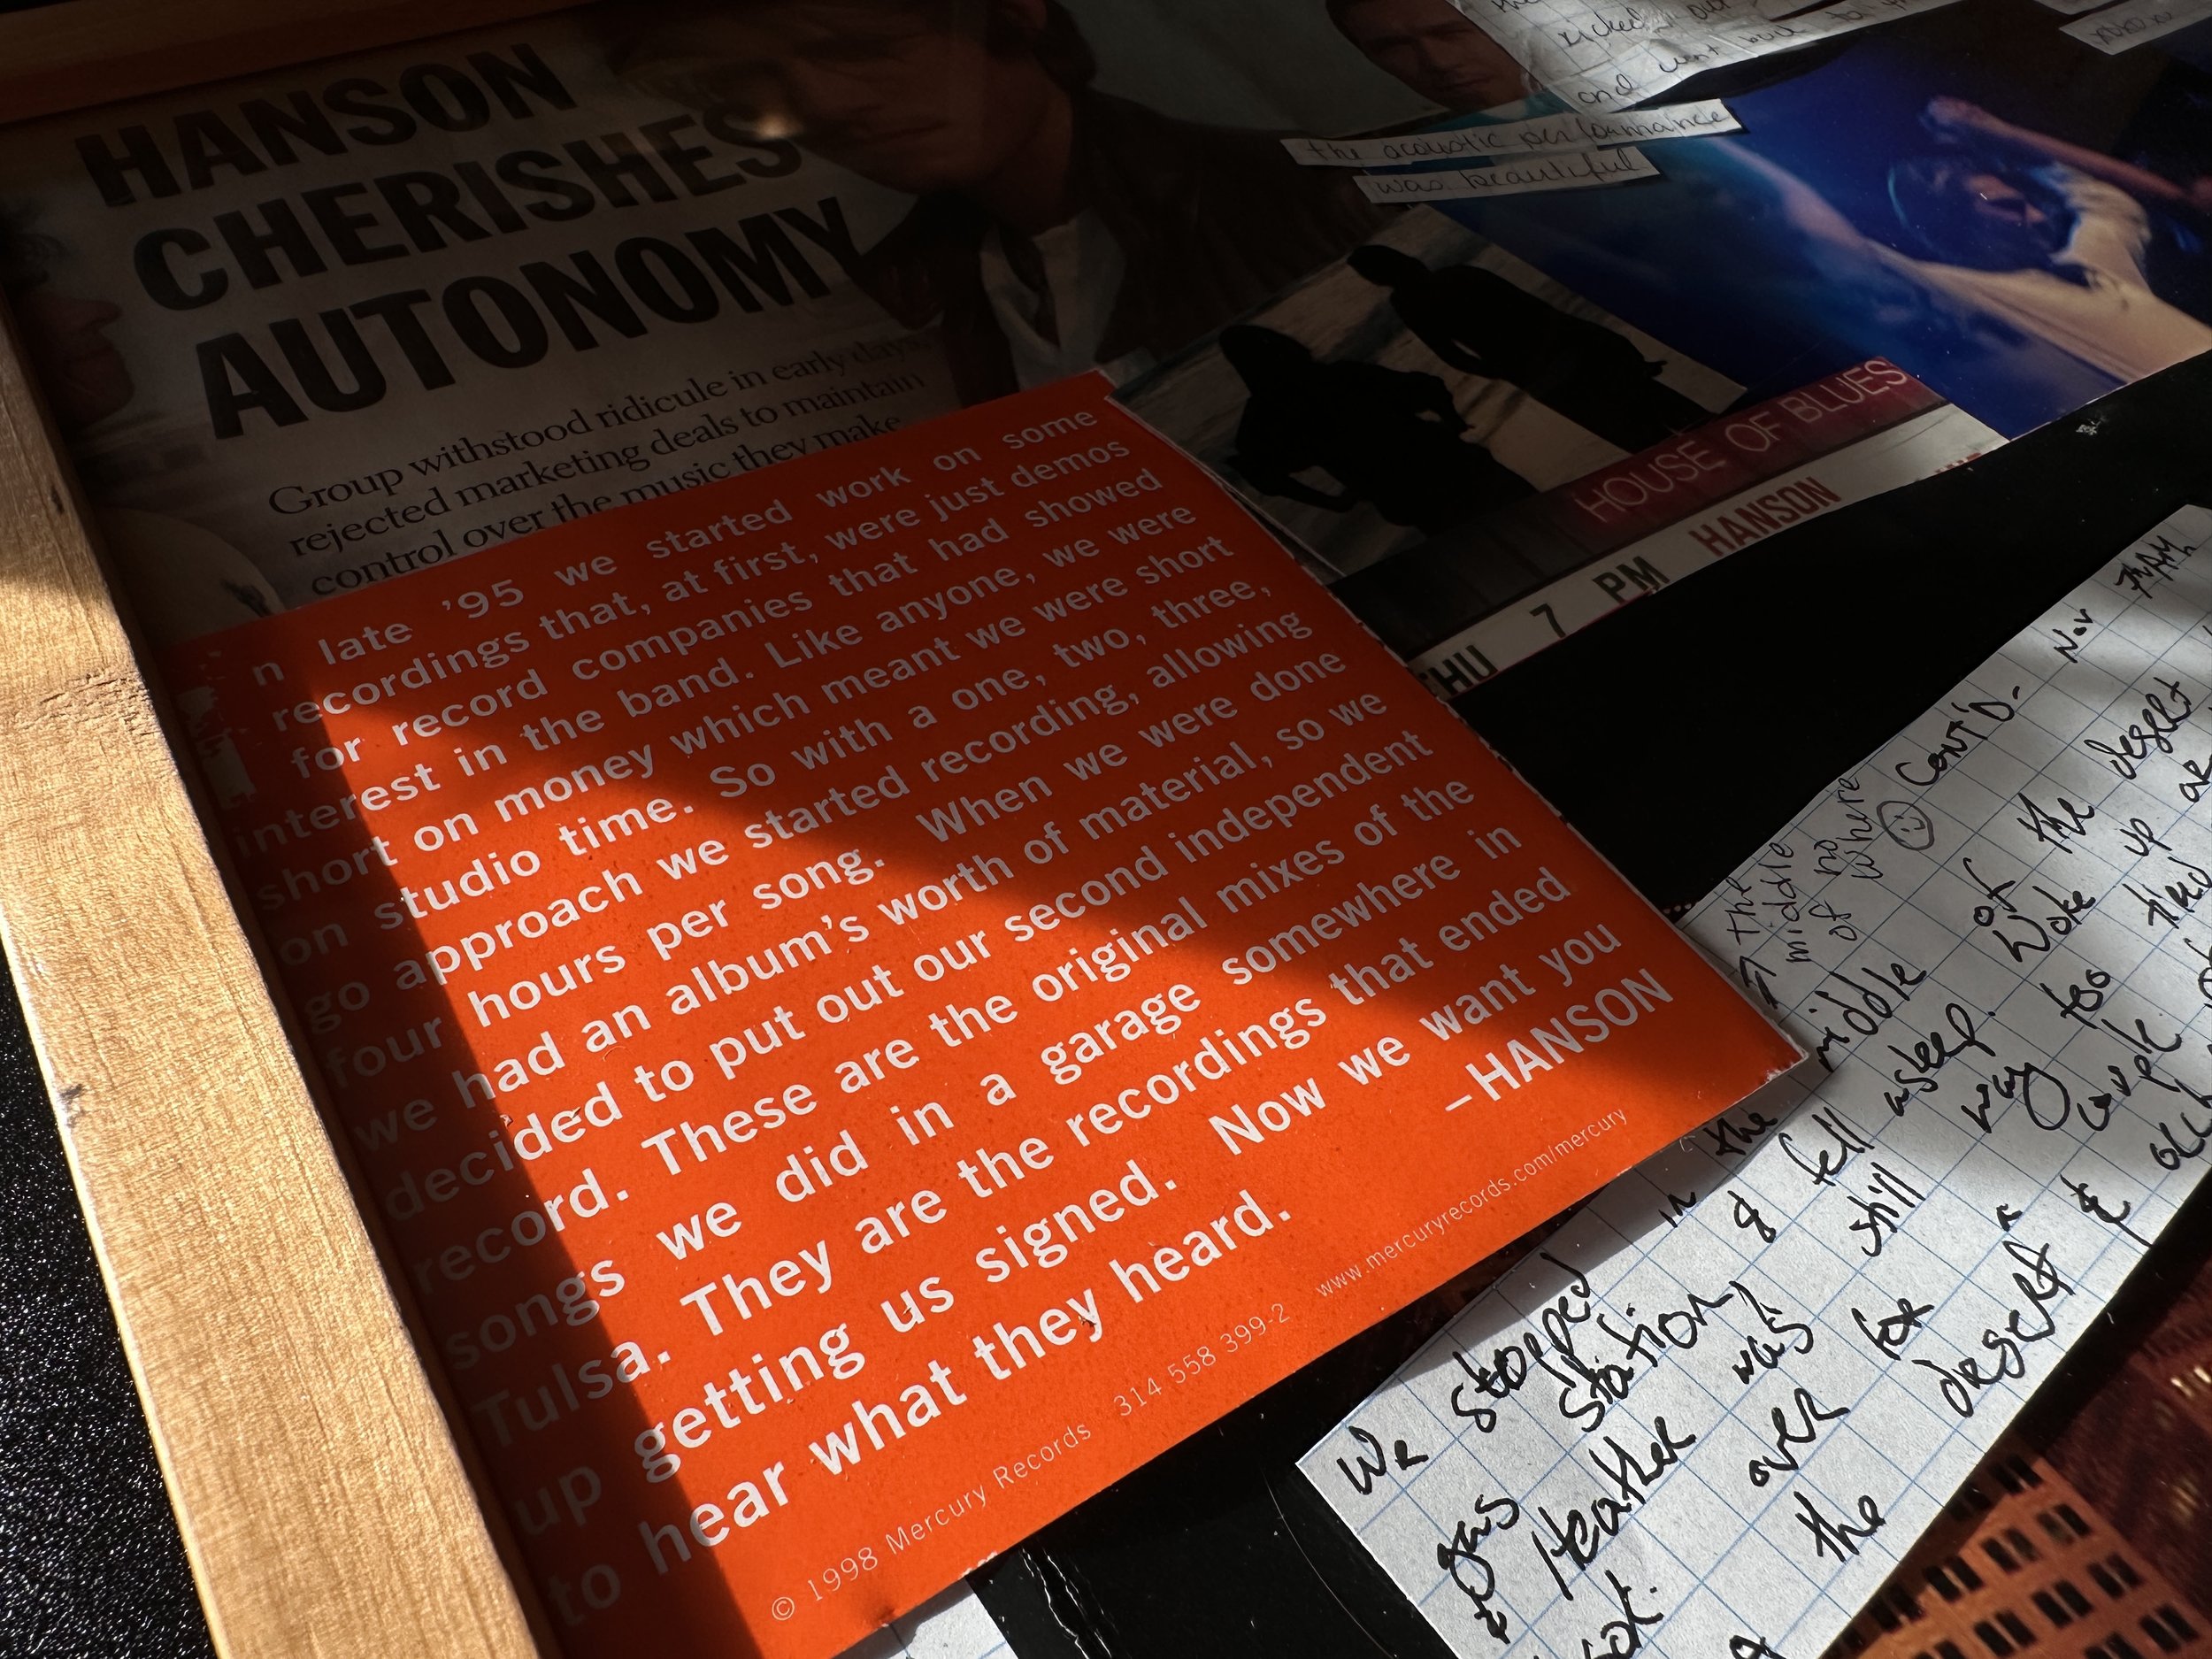 HANSON
CHERISHES
AUTONOMY
Group withstood ridicule in early days,
rejected marketing deals to maintain
control over the music they make
and went
the acoustic performance
was beautiful
HOUSE OF BLUES
THU 7 PM HANSON
In late '95 we started work on some
recordings that, at first, were just demos
for record companies that had showed
interest in the band. Like anyone, we were
short on money which meant we were short
on studio time. So with a one, two, three,
go approach we started recording, allowing
four hours per song. When we were done
we had an album's worth of material, so we
decided to put out our second independent
record. These are the original mixes of the
songs we did in a garage somewhere in
Tulsa. They are the recordings that ended
up getting us signed. Now we want you
to hear what they heard. –HANSON
© 1998 Mercury Records 314 558 399-2 www.mercuryrecords.com/mercury
the
middle
of no
where
CONT'D-
Nov
We stopped in the middle of the desert
gas station & fell asleep. Woke up
Heather was still way too tired
over for a couple
the desert &